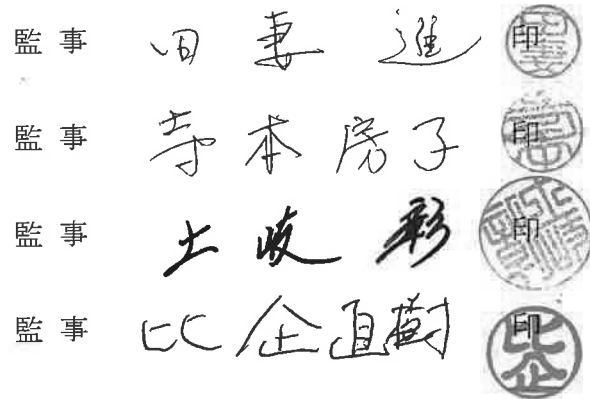 監事 田妻進 印
監事 寺本房子 印
監事 土岐彰 印
監事 比企直樹 印